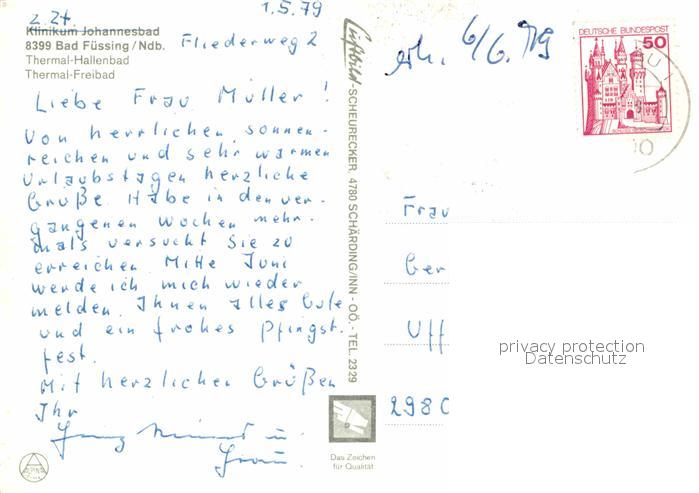 z. Zt. 1.5.79
Klinikum Johannesbad
8399 Bad Füssing/Ndb.
Thermal-Hallenbad
Thermal-Freibad
Fliederweg 2
Liebe Frau Müller!
Von herrlichen sonnen-
reichen und sehr warmen
Urlaubstagen herzliche
Grüße. Habe in den ver-
gangenen Wochen mehr-
mals versucht Sie zu
erreichen. Mitte Juni
werde ich mich wieder
melden. Ihnen alles Gute
und ein frohes Pfingst-
fest.
Mit herzlichen Grüßen
Ihr
u.
Frau.
Luftbild-SCHEURECKER, 4780 SCHÄRDING/INN - OÖ. - TEL. 2329
Das Zeichen
für Qualität
erh. 6/6.79
DEUTSCHE BUNDESPOST
50
Frau
Ger
Uff
2980
privacy protection
Datenschutz